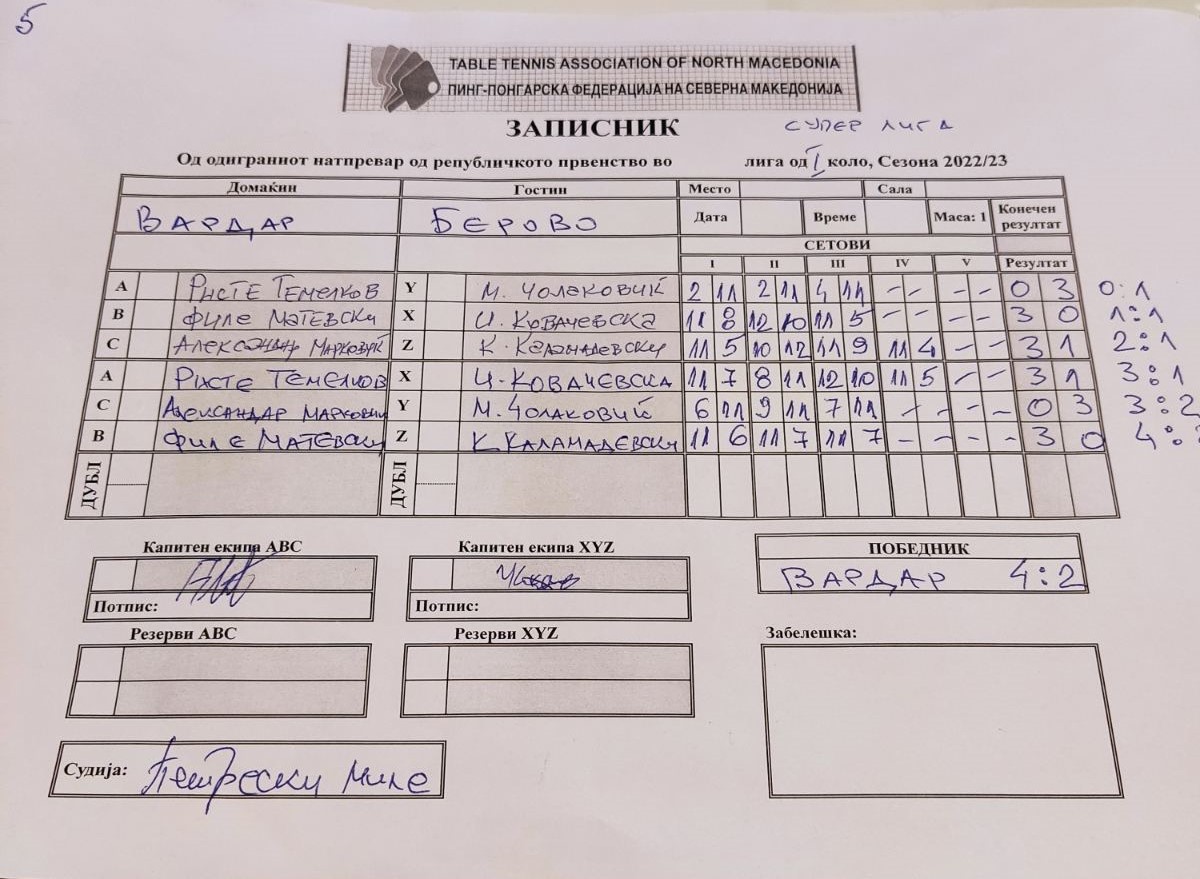 5
TABLE TENNIS ASSOCIATION OF NORTH MACEDONIA
ПИНГ-ПОНГАРСКА ФЕДЕРАЦИЈА НА СЕВЕРНА МАКЕДОНИЈА
ЗАПИСНИК СУПЕР ЛИГА
Од одиграниот натпревар од републичкото првенство во лига од I коло, Сезона 2022/23
Домаќин Гостин Место Сала
ВАРДАР БЕРОВО Дата Време Маса: 1 Конечен резултат
СЕТОВИ
I II III IV V Резултат
A РИСТЕ ТЕМЕЛКОВ Y М. ЧОЛАКОВИЌ 2 11 2 11 4 11 - - - - 0 3 0:1
B ФИЛЕ МАТЕВСКИ X И. КОВАЧЕВСКА 11 8 12 10 11 5 - - - - 3 0 1:1
C АЛЕКСАНДАР МАРКОВИЌ Z К. КАЛАМАДЕВСКИ 11 5 10 12 11 9 11 4 - - 3 1 2:1
A РИСТЕ ТЕМЕЛКОВ X И. КОВАЧЕВСКА 11 7 8 11 12 10 11 5 - - 3 1 3:1
C АЛЕКСАНДАР МАРКОВИЌ Y М. ЧОЛАКОВИЌ 6 11 9 11 7 11 - - - - 0 3 3:2
B ФИЛЕ МАТЕВСКИ Z К. КАЛАМАДЕВСКИ 11 6 11 7 11 7 - - - - 3 0 4:
ДУБЛ ДУБЛ
Капитен екипа ABC Капитен екипа XYZ ПОБЕДНИК
ВАРДАР 4:2
Потпис: Потпис:
Резерви ABC Резерви XYZ Забелешка:
Судија: Петрески Миле